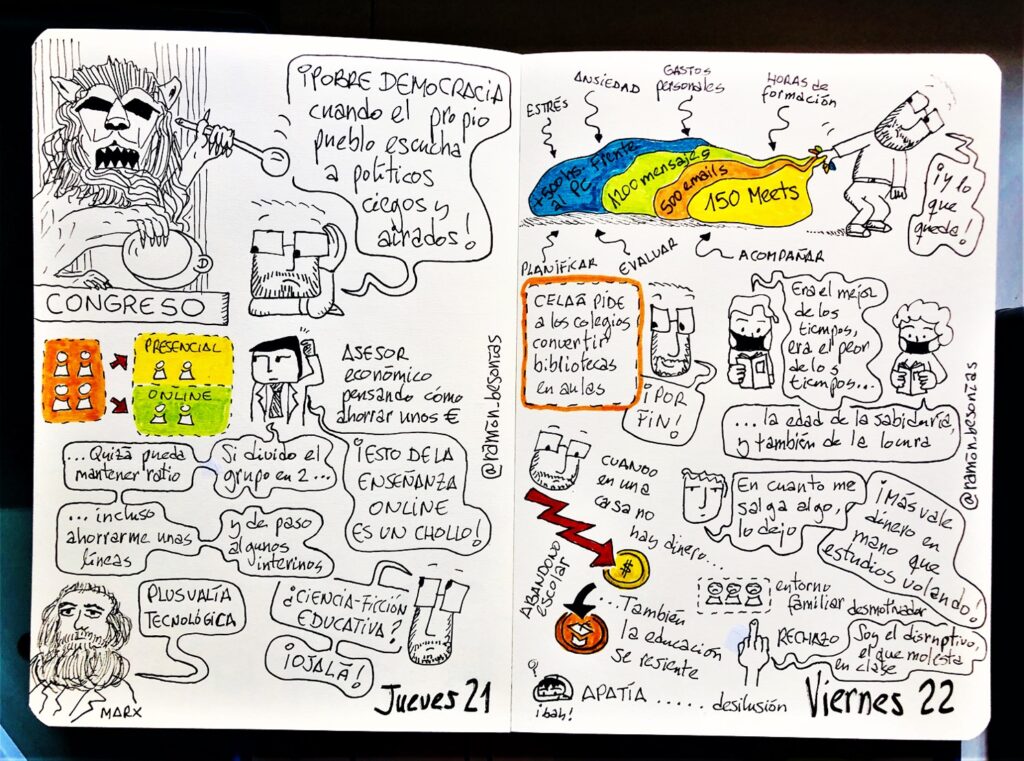 ¡POBRE DEMOCRACIA
cuando el propio
pueblo escucha
a políticos
ciegos y
airados!
CONGRESO
PRESENCIAL
ONLINE
ASESOR
económico
pensando cómo
ahorrar unos €
@ramón_besonías
Si divido el
grupo en 2...
...Quizá pueda
mantener ratio
... incluso
ahorrarme unas
líneas
y de paso
algunos
interinos
¡ESTO DE LA
ENSEÑANZA
ONLINE
ES UN CHOLLO!
PLUSVALÍA
TECNOLÓGICA
MARX
¿CIENCIA-FICCIÓN
EDUCATIVA?
¡OJALÁ!
Jueves 21
ESTRÉS
ANSIEDAD
GASTOS
personales
HORAS de
formación
+500 hs. frente
al PC
1200 mensajes
500 emails
150 Meets
¡y lo
que
queda!
PLANIFICAR
EVALUAR
ACOMPAÑAR
CELAÁ PIDE
A los colegios
convertir
bibliotecas
en aulas
¡POR
FIN!
Era el mejor
de los
tiempos,
era el peor
de los
tiempos...
... la edad de la sabiduría,
y también de la locura
@ramón.besonías
CUANDO
en una
casa no
hay dinero...
En cuanto me
salga algo,
lo dejo
¡Más vale
dinero en
mano que
estudios volando!
ABANDONO
escolar
$
...También
la educación
se resiente
entorno
familiar desmotivador
RECHAZO
Soy el disruptivo,
el que molesta
en clase
¡bah!
APATÍA ..... desilusión
Viernes 22